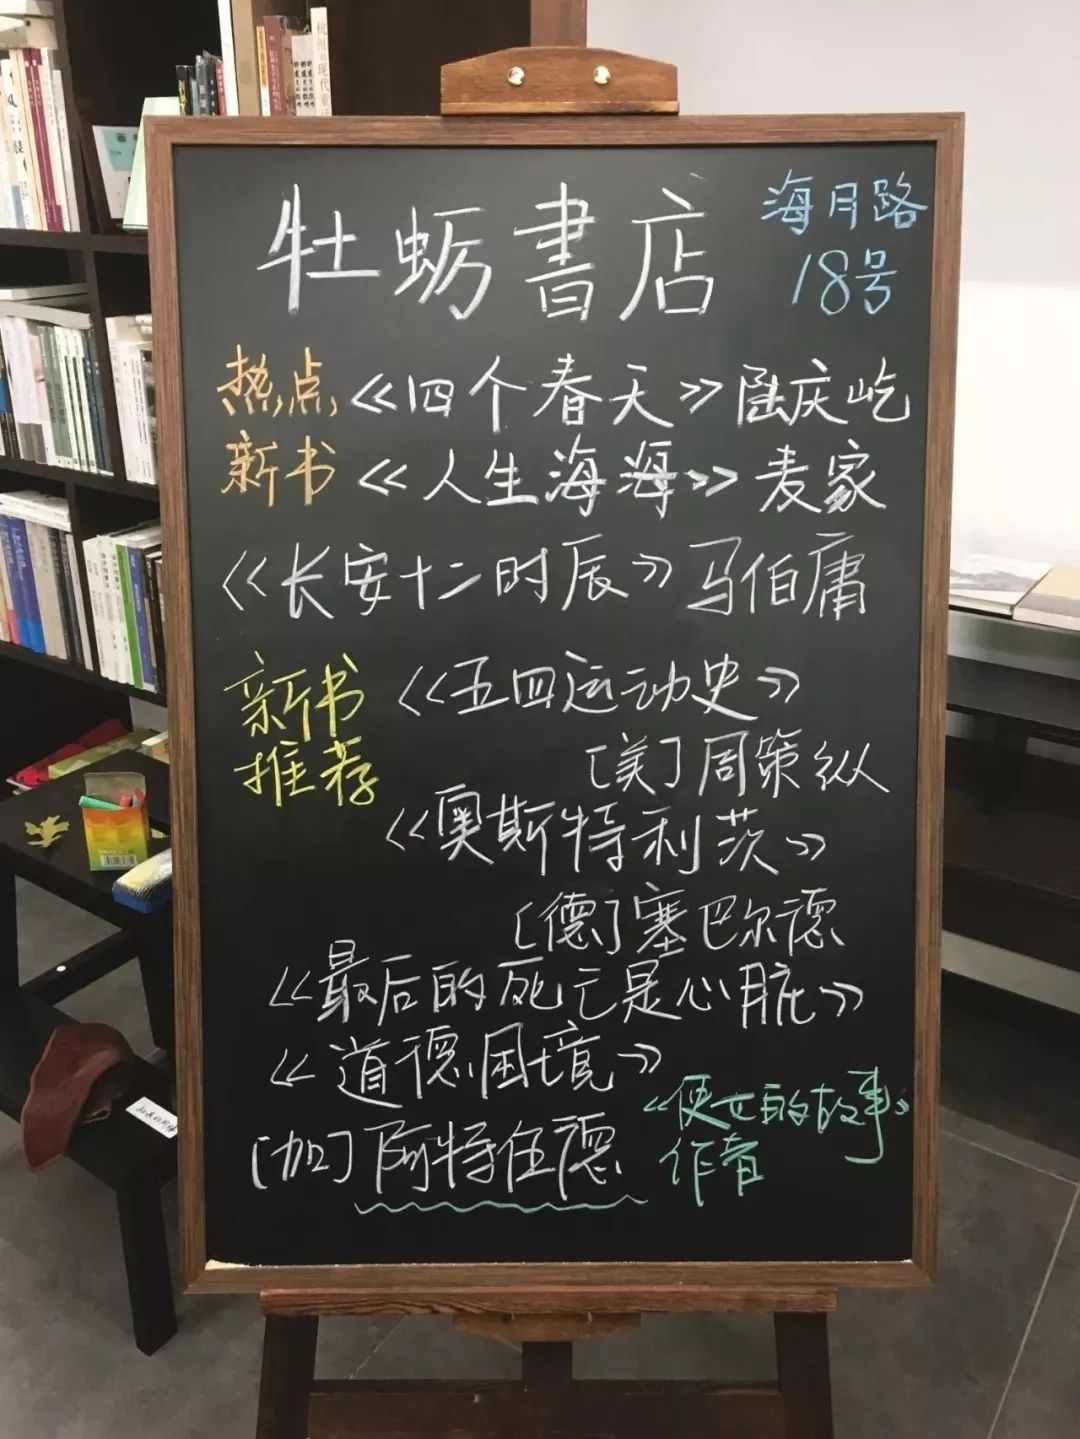 牡蛎書店
海月路
18号
热点
《四个春天》陆庆屹
新书
《人生海海》麦家
《长安十二时辰》马伯庸
新书
推荐
《五四运动史》
[美]周策纵
《奥斯特利茨》
[德]塞巴尔德
《最后的死亡是心脏》
《道德困境》
[加]阿特伍德
《使女的故事》
作者